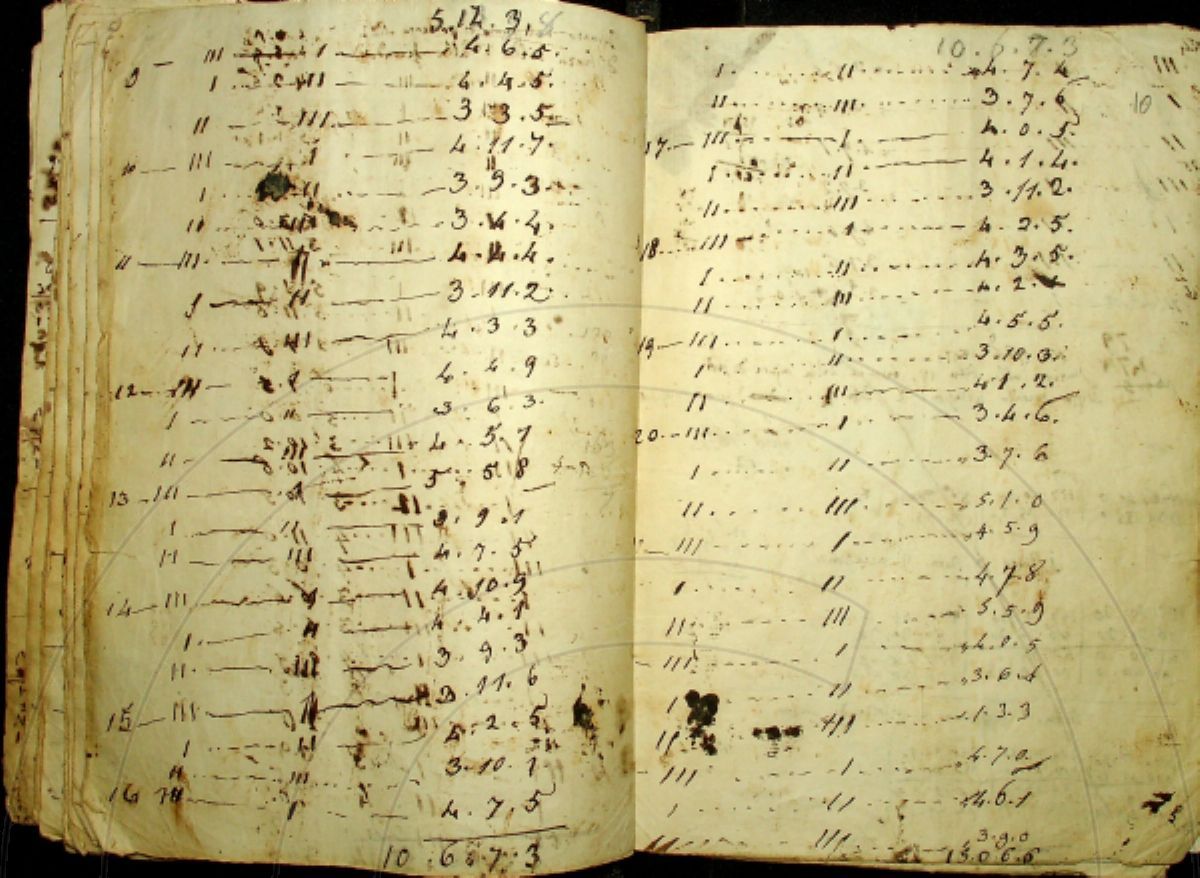 5.12.3.8
III I 4.6.5.
9 I III 4.4.5.
II III 3.3.5.
10 III I 4.11.7.
I II 3.9.3.
II III 3.4.4.
11 III II 4.4.4.
I II 3.11.2
II III 4.3.3
12 III I 4.4.9
I II 3.6.3.
II III 4.5.7
13 III I 5.5.8
I II 3.9.1
II III 4.7.5
14 III I 4.10.9
I II 4.4.1
II III 3.9.3
15 III I 3.11.6
I II 4.2.5
II III 3.10.1
16 III I 4.7.5
10.6.7.3
10.6.7.3
I II 4.7.4
II III 3.7.6
17 III I 4.0.5.
I II 4.1.4.
II III 3.11.2.
18 III I 4.2.5.
I II 4.3.5.
II III 4.2.
19 III I 4.5.5.
I II 3.10.3.
II III 4.1.2.
20 III I 3.4.6.
I II 3.7.6
II III 5.1.0
III I 4.5.9
I II 4.7.8
II III 5.5.9
III I 4.0.5
I II 3.6.1
II III 1.3.3
III I 4.7.0
I II 4.6.1
II III 3.9.0
13.0.6.6